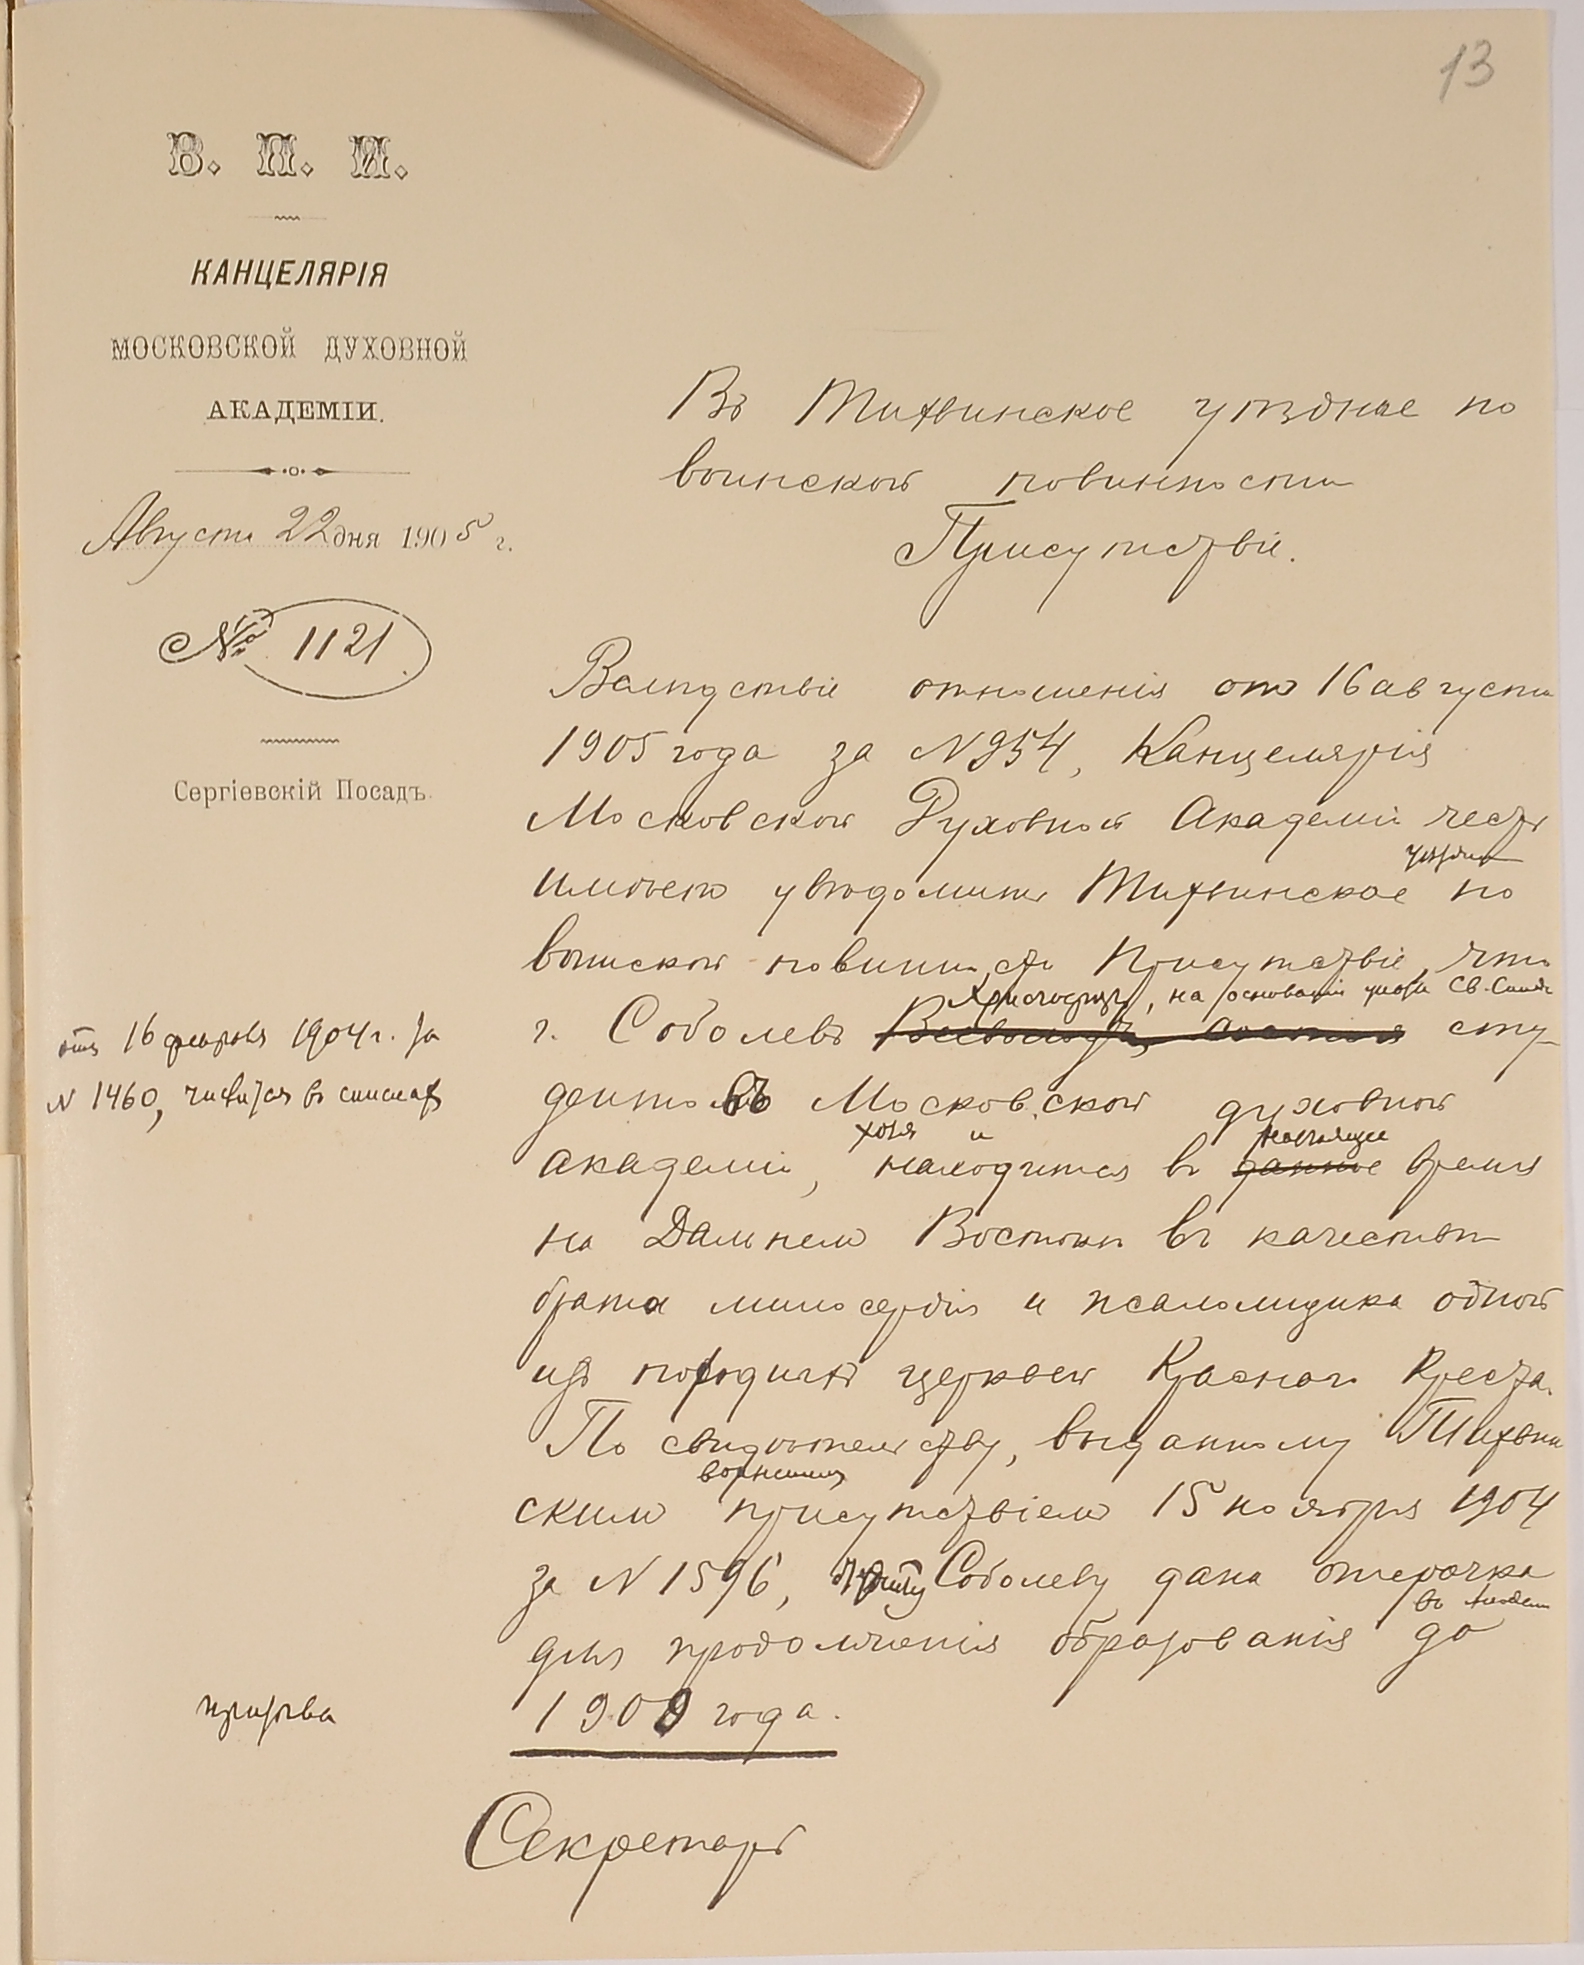 13
В. П. И.
КАНЦЕЛЯРІЯ
МОСКОВСКОЙ ДУХОВНОЙ
АКАДЕМІИ.
Августа 22 дня 1905 г.
№ 1121
Сергіевскій Посадъ.
Въ Тихвинское уѣздное по
воинской повинности
Присутствіе.
Вслѣдствіе отношенія отъ 16 августа
1905 года за N 954, Канцелярія
Московской Духовной Академіи честь
уѣздное
имѣетъ увѣдомить Тихвинское по
воинской повинности Присутствіе, что
, на основаніи указа Св. Синода
г. Соболевъ Всеволодъ, состоя сту-
отъ 16 февраля 1904 г. за
N 1460, числится въ спискахъ
дентовъ Московской духовной
хотя и настоящее
академіи, находится въ данное время
на Дальнемъ Востокѣ въ качествѣ
брата милосердія и псаломщика одной
изъ походныхъ церквей Краснаго Креста.
По свидѣтельству, выданному Тихвин
воинскимъ
скимъ присутствіемъ 15 ноября 1904
за N 1596, Соболеву дана отсрочка
для продолженія образованія до
призыва
1909 года.
Секретарь